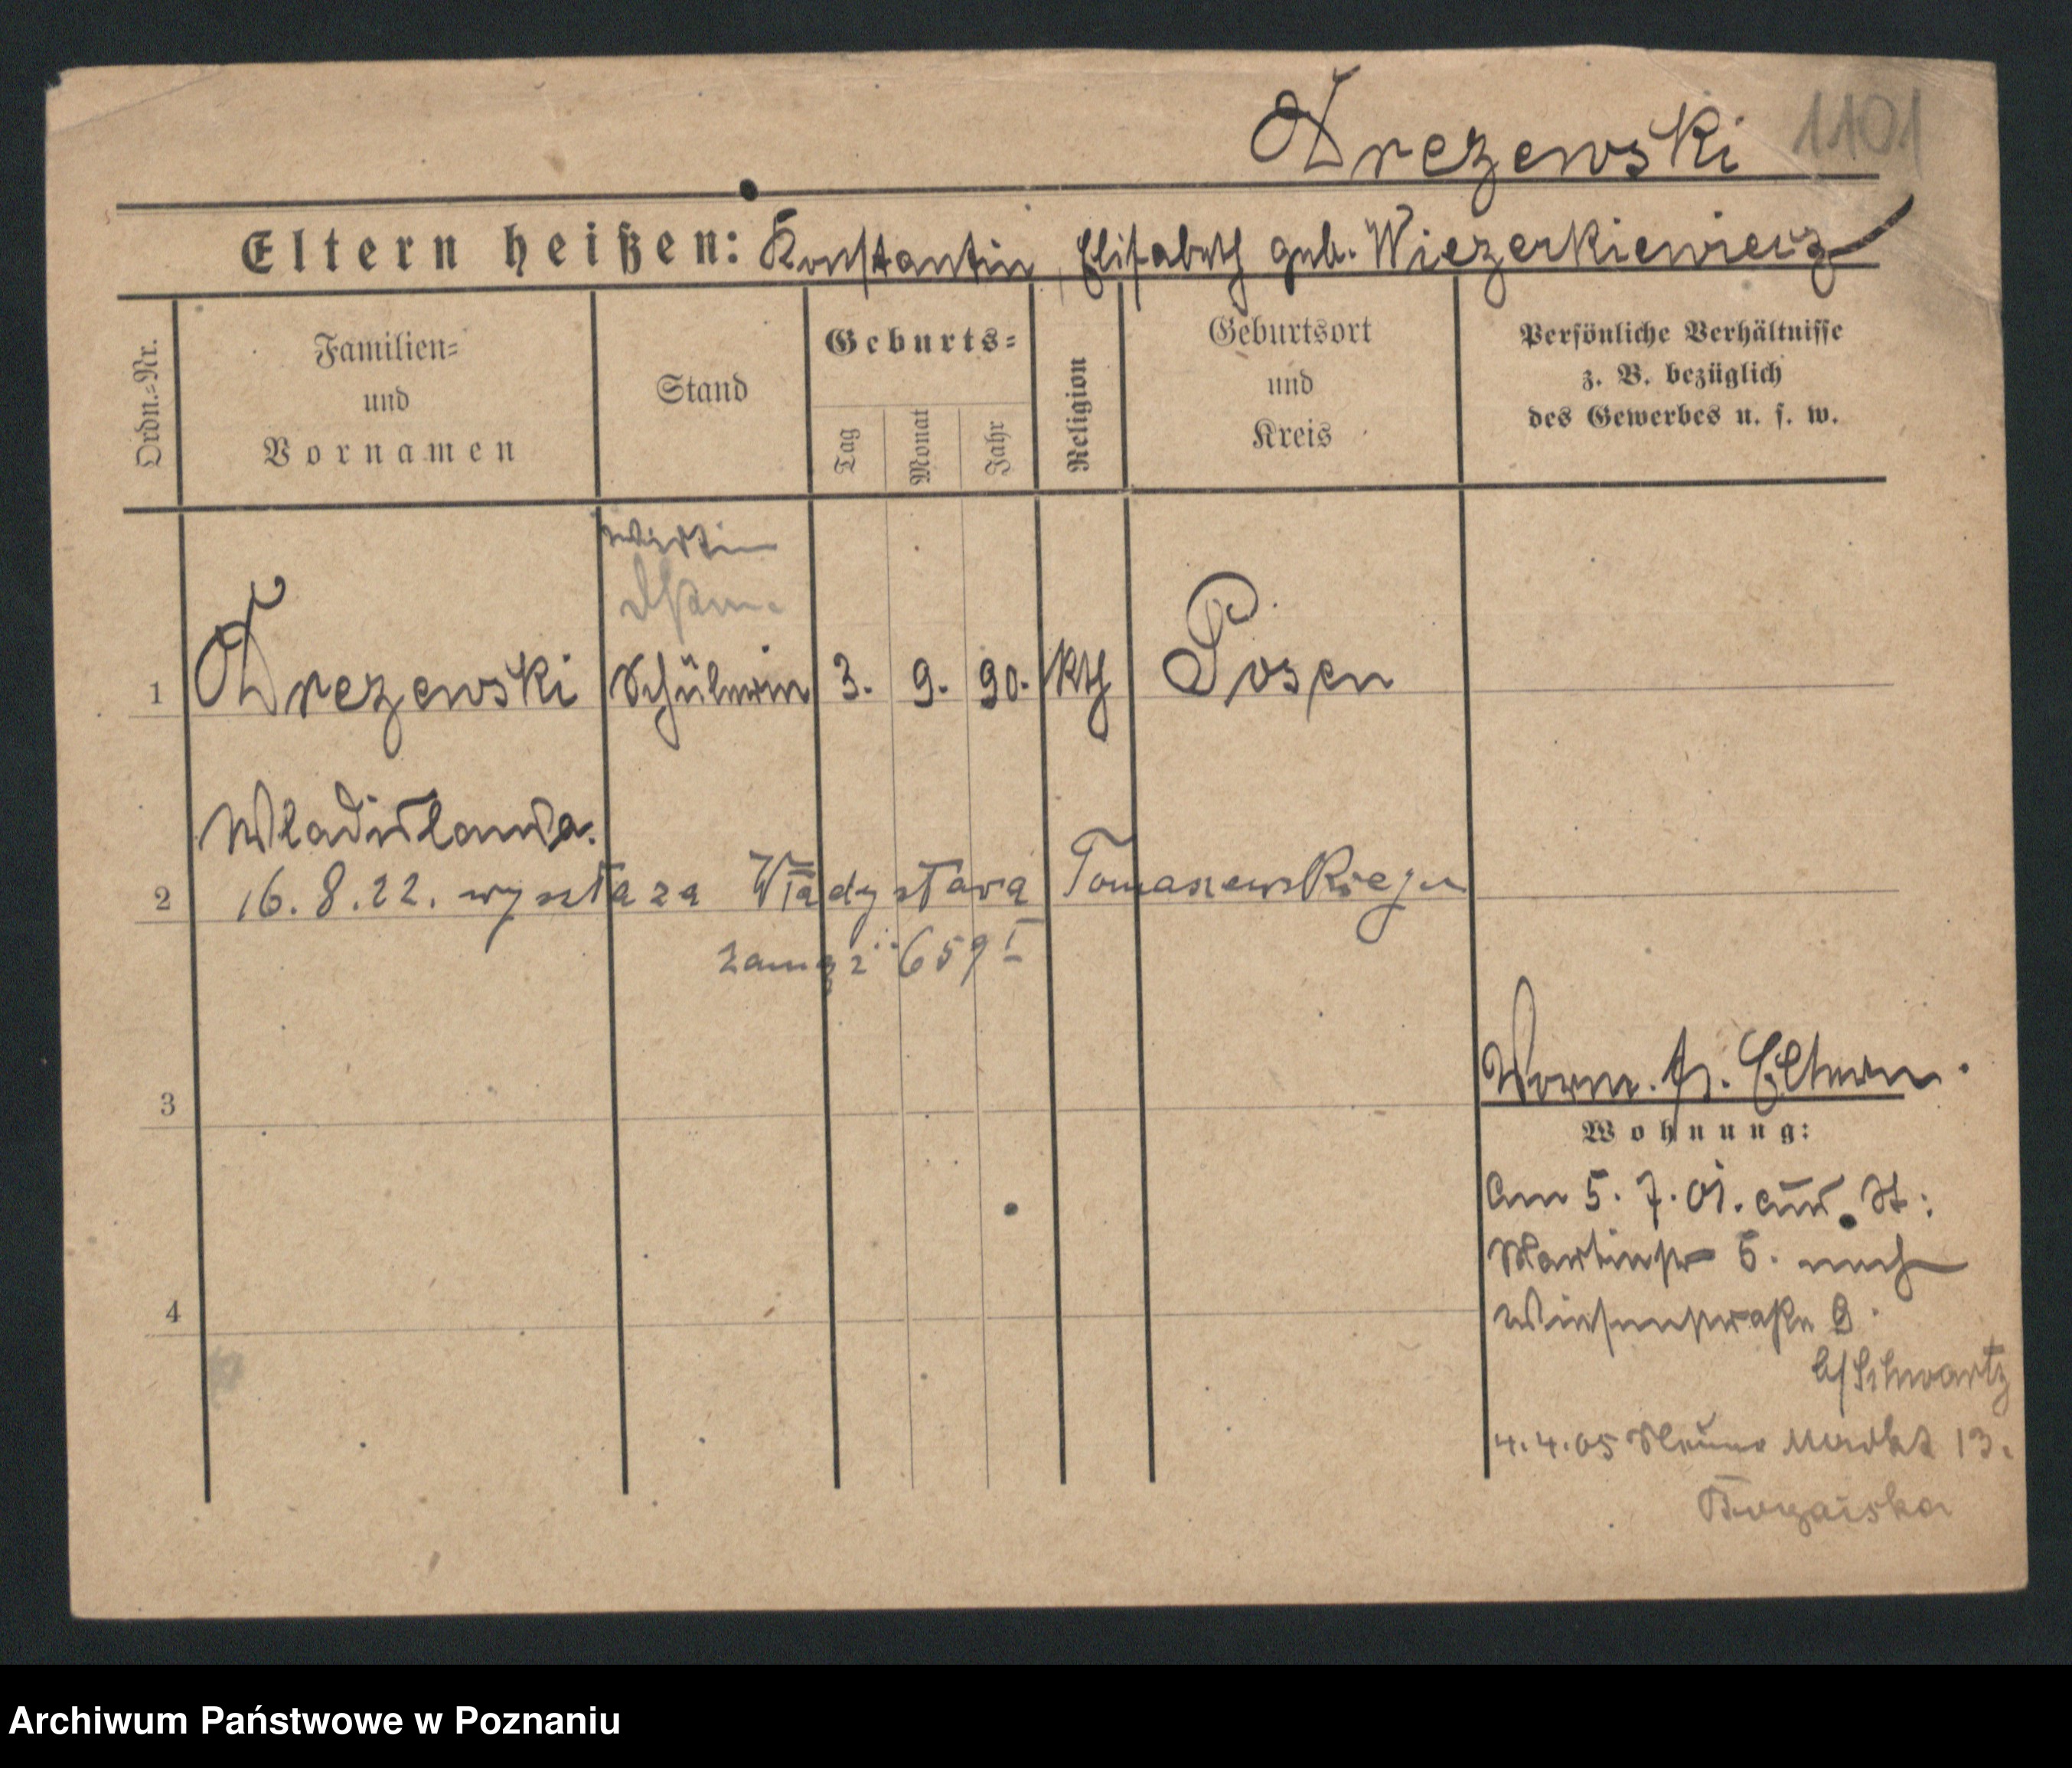 Drezewski 1101
Eltern heißen: Konstantin, Elisabeth geb. Wiezerkiewicz
Ordn.=Nr.
Familien=
und
Vornamen
Stand
Geburts=
Tag
Monat
Jahr
Religion
Geburtsort
und
Kreis
Persönliche Verhältnisse
z. B. bezüglich
des Gewerbes u. s. w.
1 Drezewski Schülerin 3. 9. 90. kth Posen
Wladislawa.
2 16.8.22. wyszła za Władysława Tomaszewskiego
659 I
3
4
Eltern.
Wohnung:
Am 5.7.01. aus St:
Martinstr 5. nach
Wiesenstraße 9.
b/Schwartz
4.4.05 Neuer Markt 13.
Archiwum Państwowe w Poznaniu